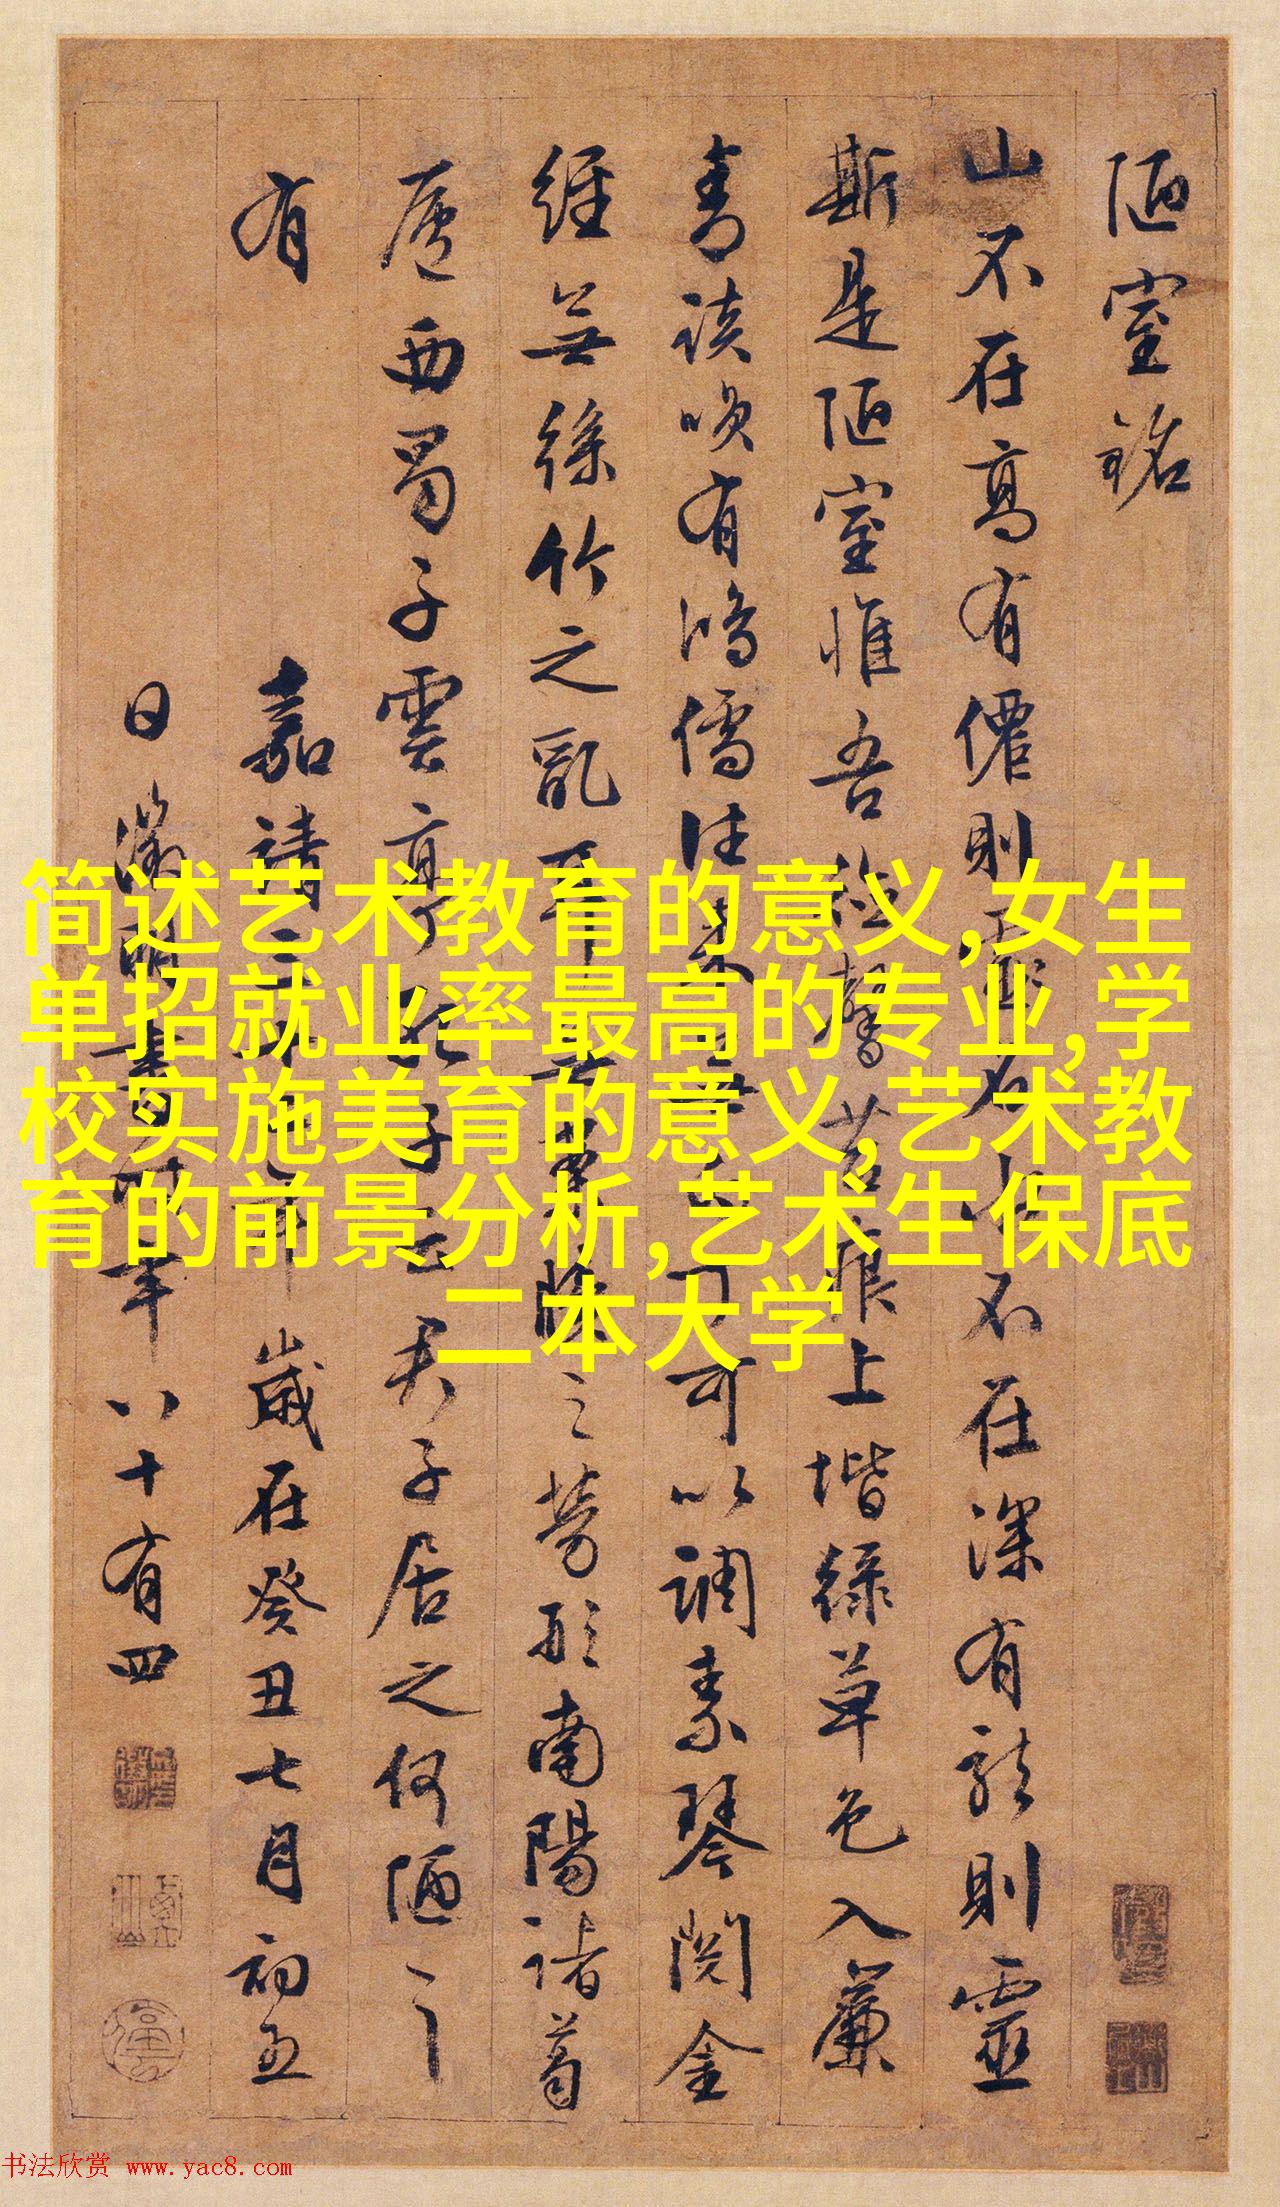 陋室銘
山不在高有僊則靈名水不在深有龍則靈
斯是陋室惟吾德馨苔痕上堦綠草色入簾
青談咲有鴻儒往來無白丁可以調素琴閱金
經無絲竹之亂耳無案牘之勞形南陽諸葛
廬西蜀子雲亭孔子云君子居之何陋之
有
嘉靖三十二年歲在癸丑七月初五
日徵明書時年八十有四
简述艺术教育的意义,女生
单招就业率最高的专业,学
校实施美育的意义,艺术教
育的前景分析,艺术生保底
二本大学
书法欣赏 www.yac8.com